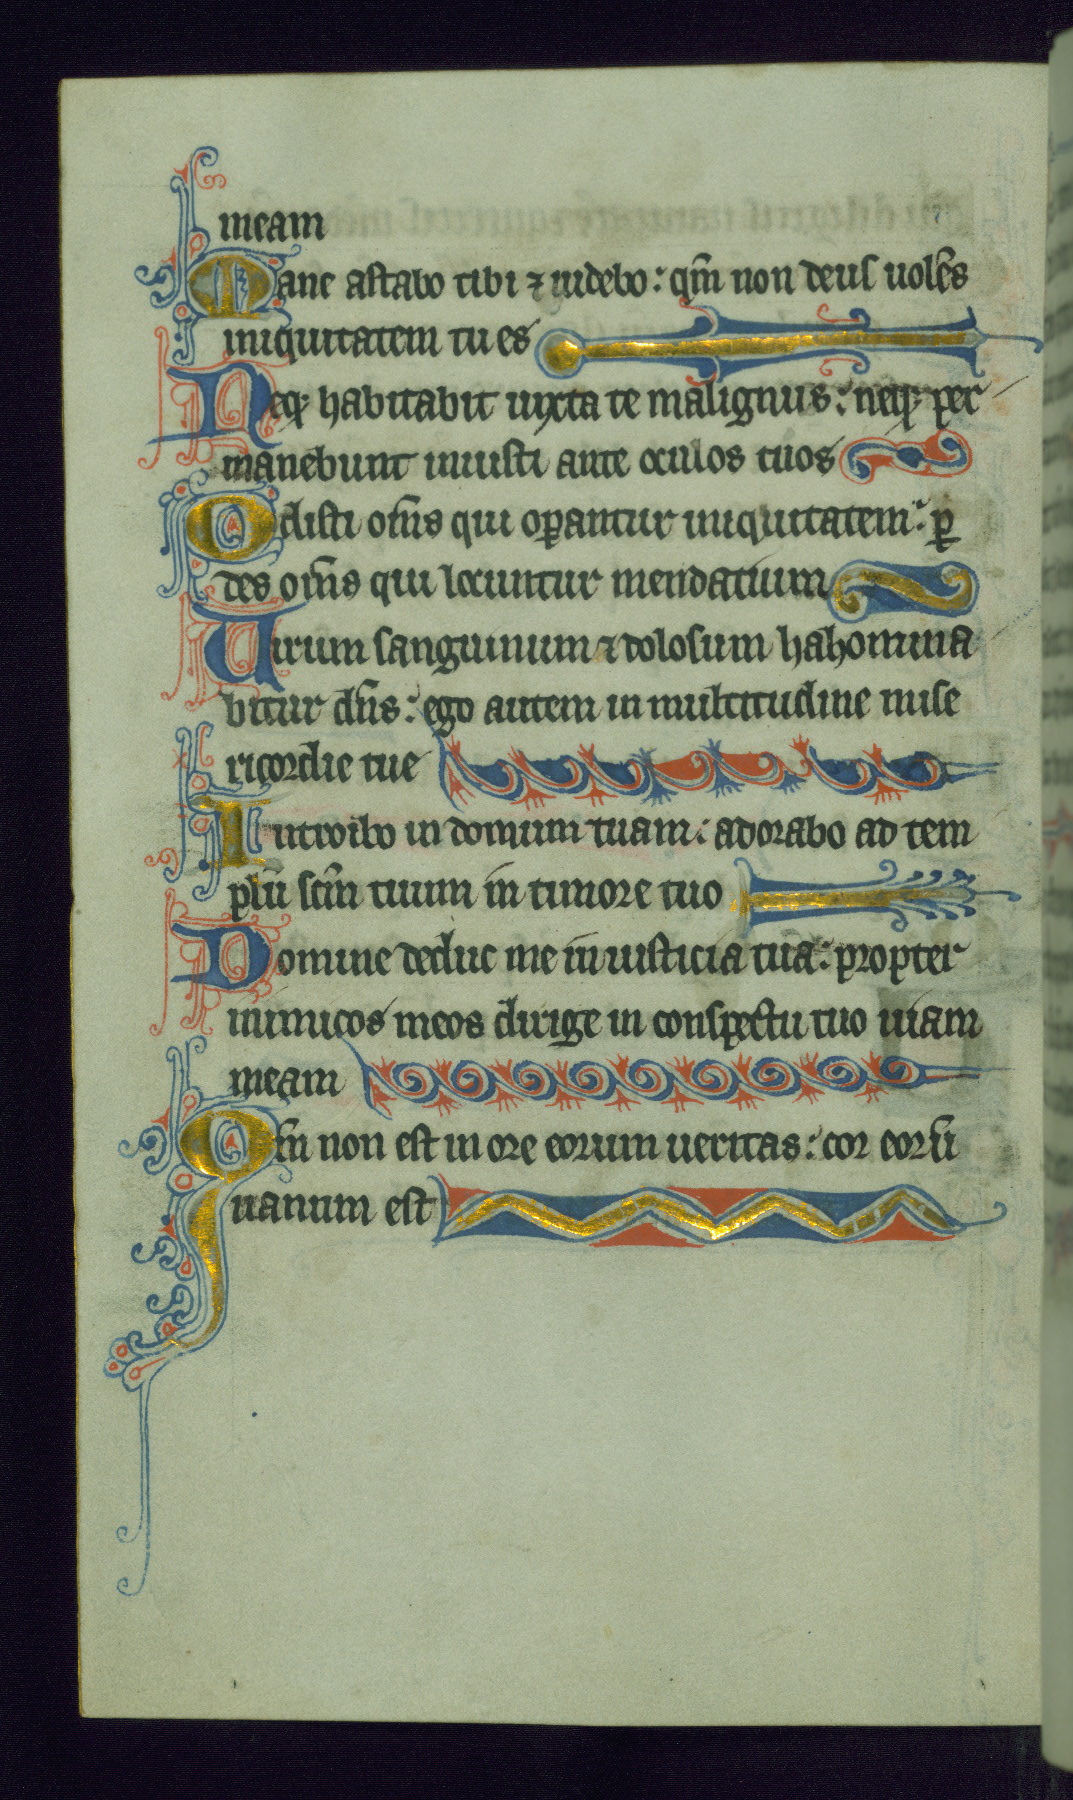 meam
Mane astabo tibi ⁊ uidebo: qm̄ non deus uolēs
iniquitatem tu es
Neqꝫ habitabit iuxta te malignus: neqꝫ per
manebunt iniusti ante oculos tuos
Odisti om̄s qui oꝑantur iniquitatem: ꝑ
des om̄s qui locuntur mendatium
Uirum sanguinum ⁊ dolosum hahomina
bitur dn̄s: ego autem in multitudine mise
ricordie tue
Introibo in domum tuam: adorabo ad tem
plū scm̄ tuum in timore tuo
Domine deduc me in iusticia tua: propter
inimicos meos dirige in conspectu tuo uiam
meam
Qm̄ non est in ore eorum ueritas: cor eorū
uanum est